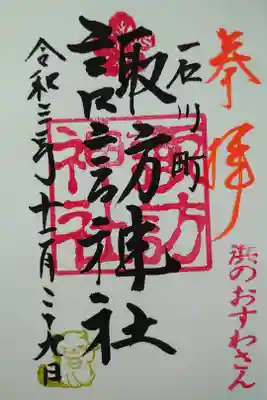 奉拝
浜のおすわさん
石川町
諏訪神社
諏方神社
令和三年十一月二十九日